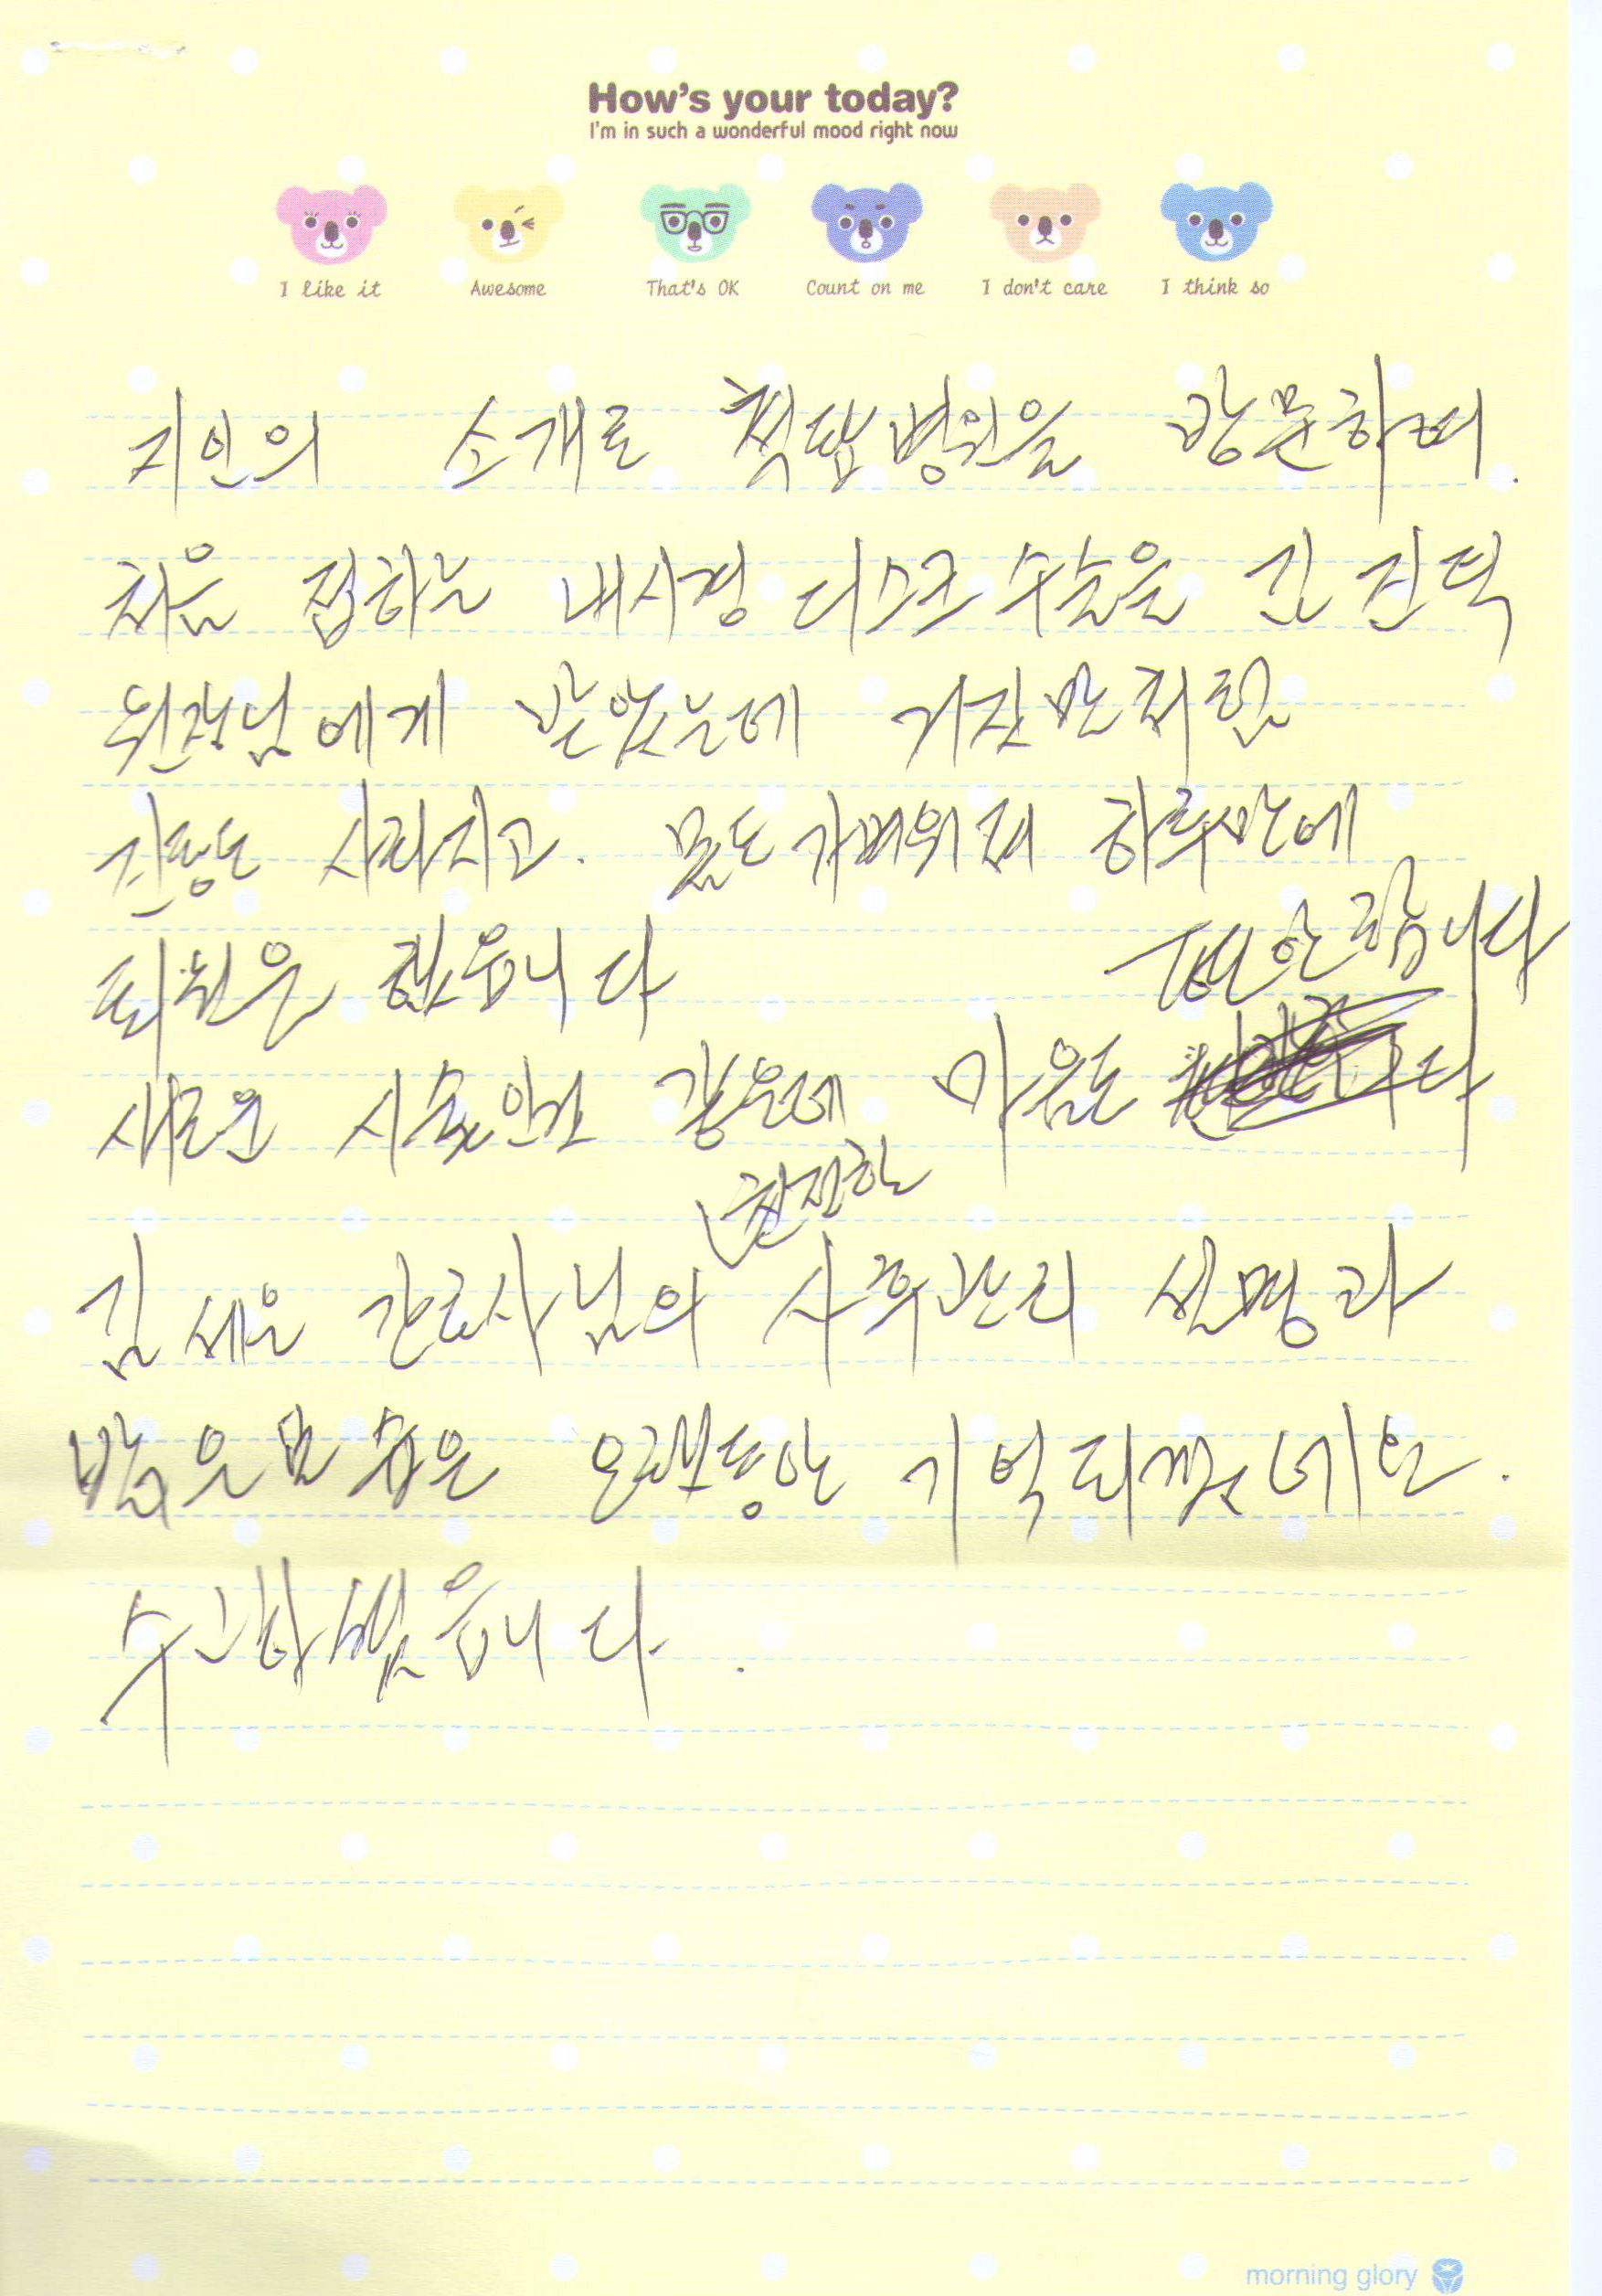 How's your today?
I'm in such a wonderful mood right now
I like it Awesome That's OK Count on me I don't care I think so
지인의 소개로 척탑병원을 방문하며.
처음 접하는 내시경 디스크 수술을
원장님에게 받았는데 거짓말처럼
진통도 사라지고. 몸도 가벼워져 하루만에
퇴원을 했읍니다
편안합니다
새로운 마음도
친절한
김세은 간호사님의 사후관리 설명과
밝은 모습은 오랫동안 기억되겠네요.
수고하셨읍니다.
morning glory